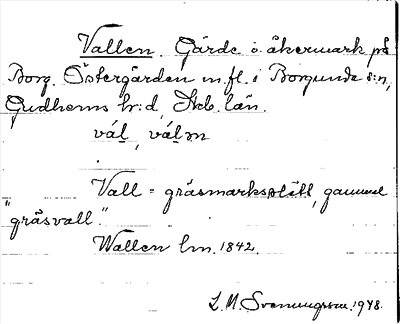 Vallen. Gärde o. åkermark på
Borg. Östergården m.fl. i Borgunda s:n,
Gudhems hr:d, Skb. län.
vál, válm
Vall = gräsmarksslätt, gammal
"gräsvall".
Wallen lm. 1842.
L. M. Svenungsson. 1948.